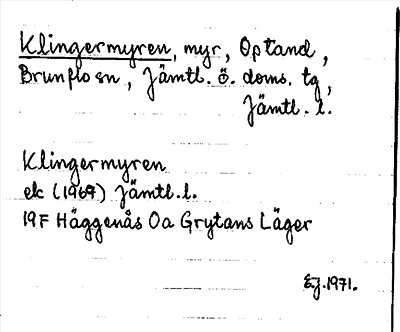 Klingermyren, myr, Optand,
Brunflo sn, Jämtl. ö. doms. tg,
Jämtl. l.
Klingermyren
ek (1969) Jämtl. l.
19F Häggenås Oa Grytans Läger
E.J. 1971.